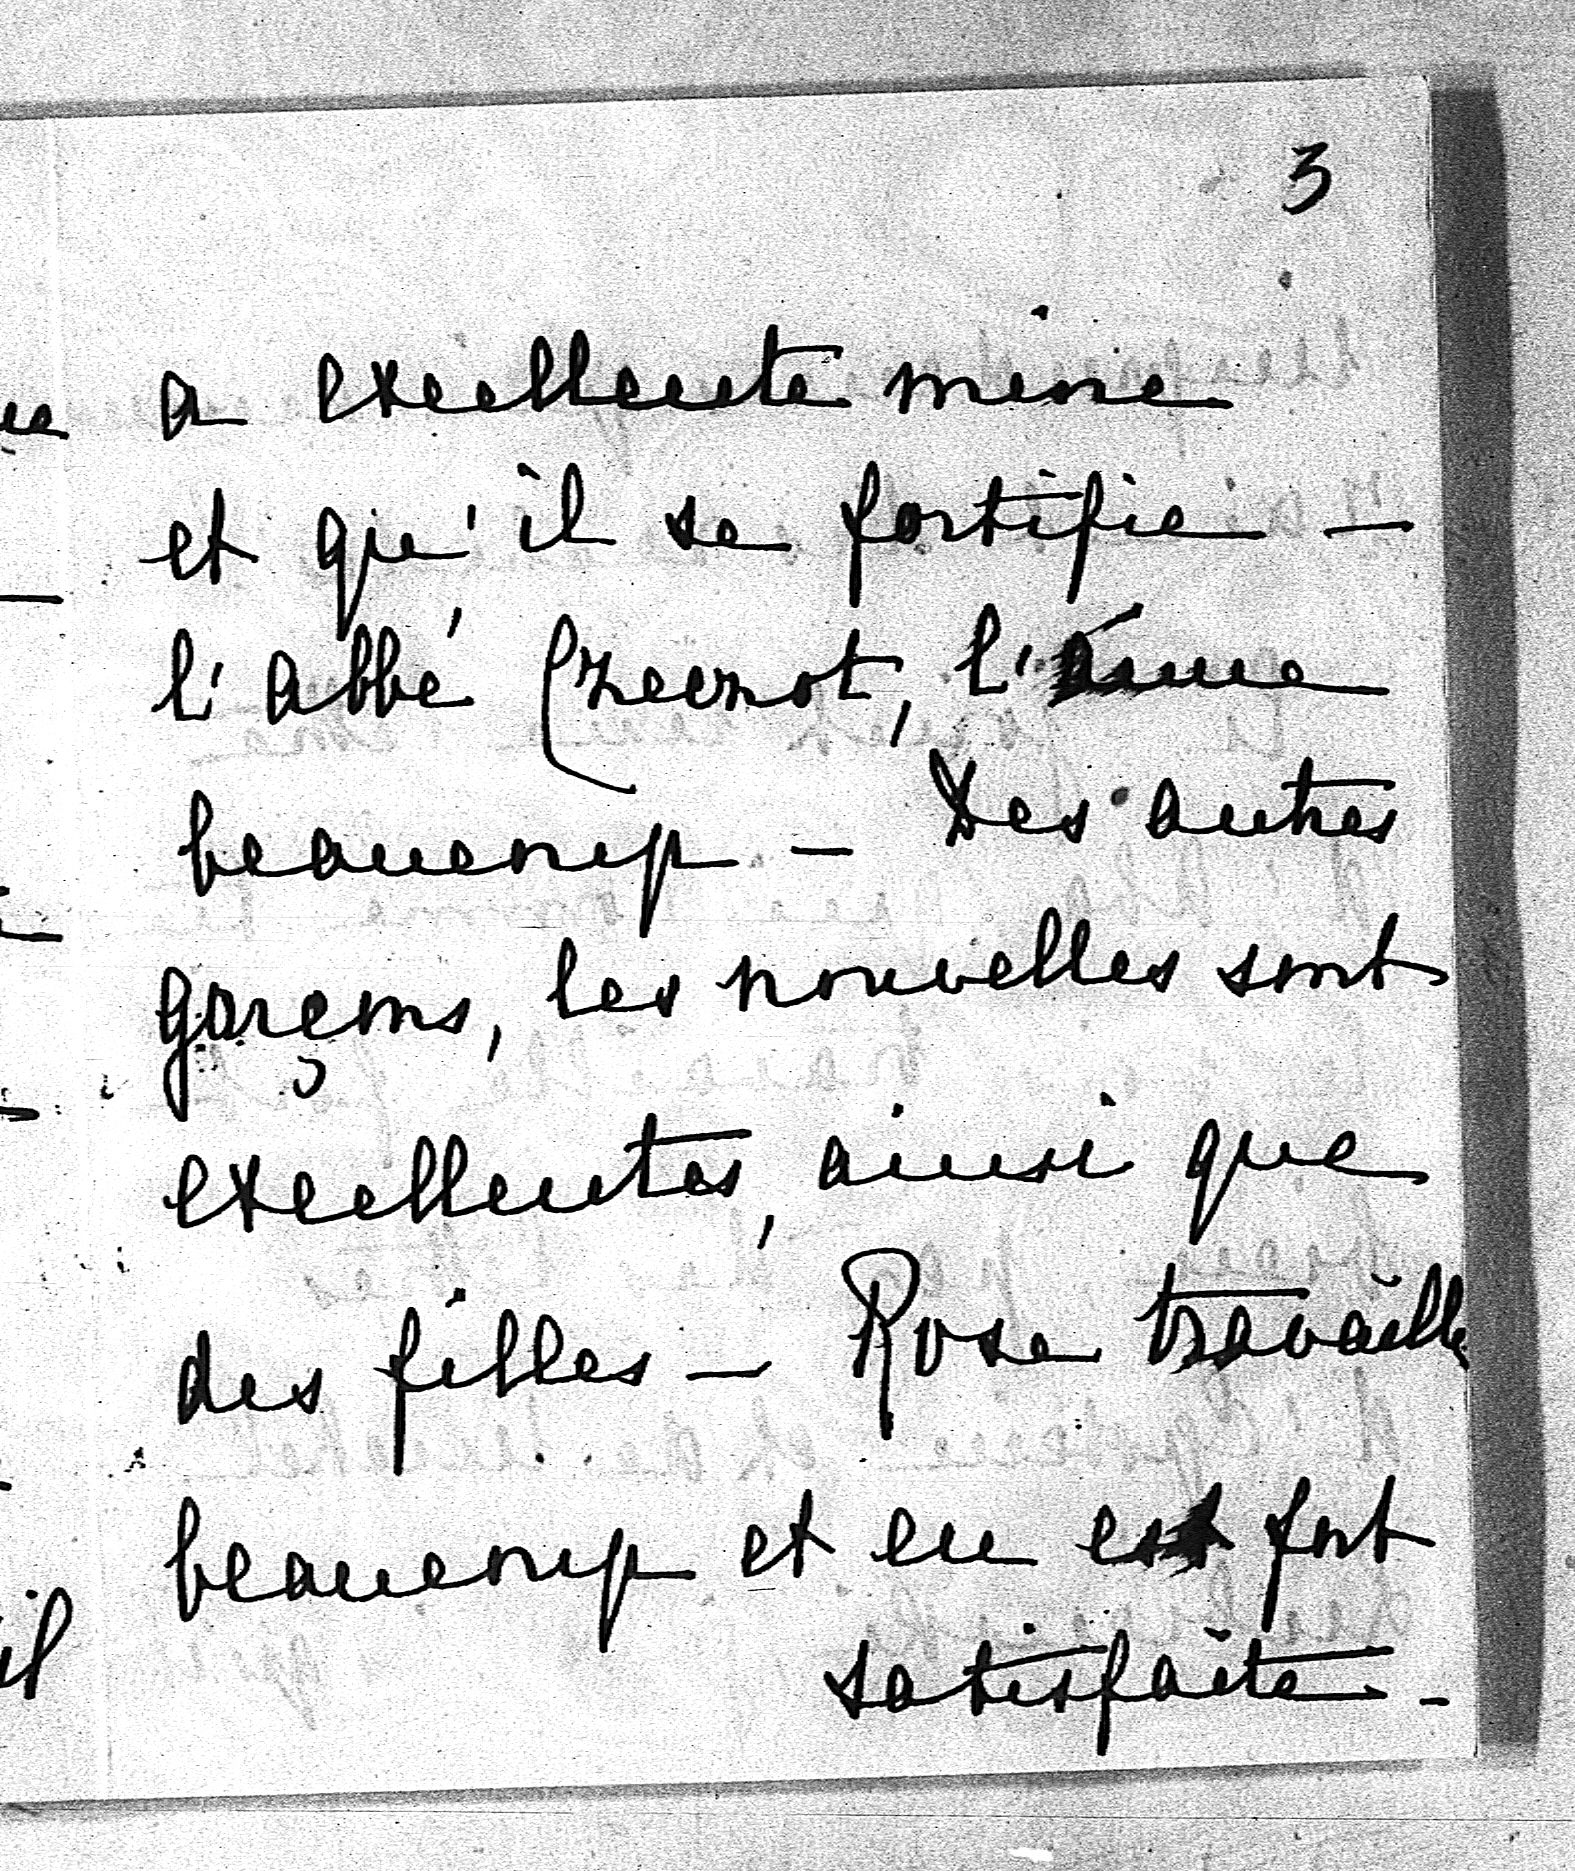 3
a excellente mine
et qu'il se fortifie —
l'abbé l'aime
beaucoup — Des autres
garçons, les nouvelles sont
excellentes, ainsi que
des filles — Rose travaille
beaucoup et en est fort
satisfaite -